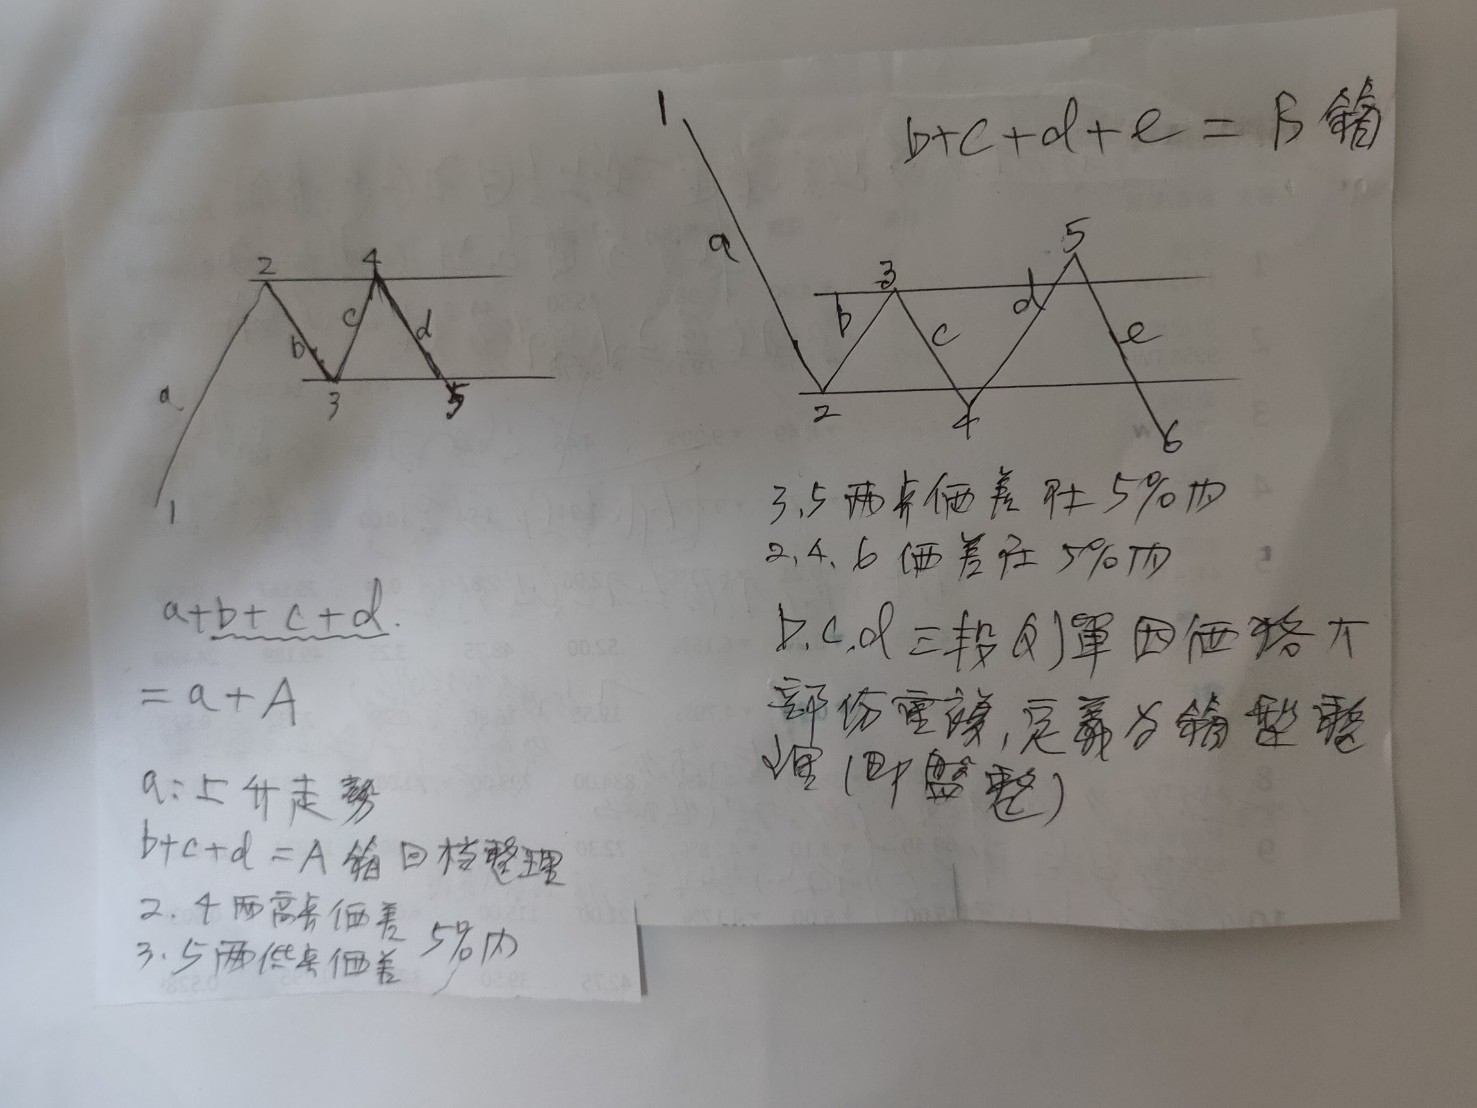 1
b+c+d+e = B 箱
a
2
4
b
c
d
a
3
5
1
3
5
b
c
d
e
2
4
6
3.5 两点価差在 5%内
2.4.6 価差在 5%内
b.c.d 三段 単因価格大
部份重複,定義为箱型整
理(即盤整)
a+b+c+d.
= a+A
a:上升走勢
b+c+d=A 箱回档整理
2.4 两高点価差
3.5 两低点価差 5%内